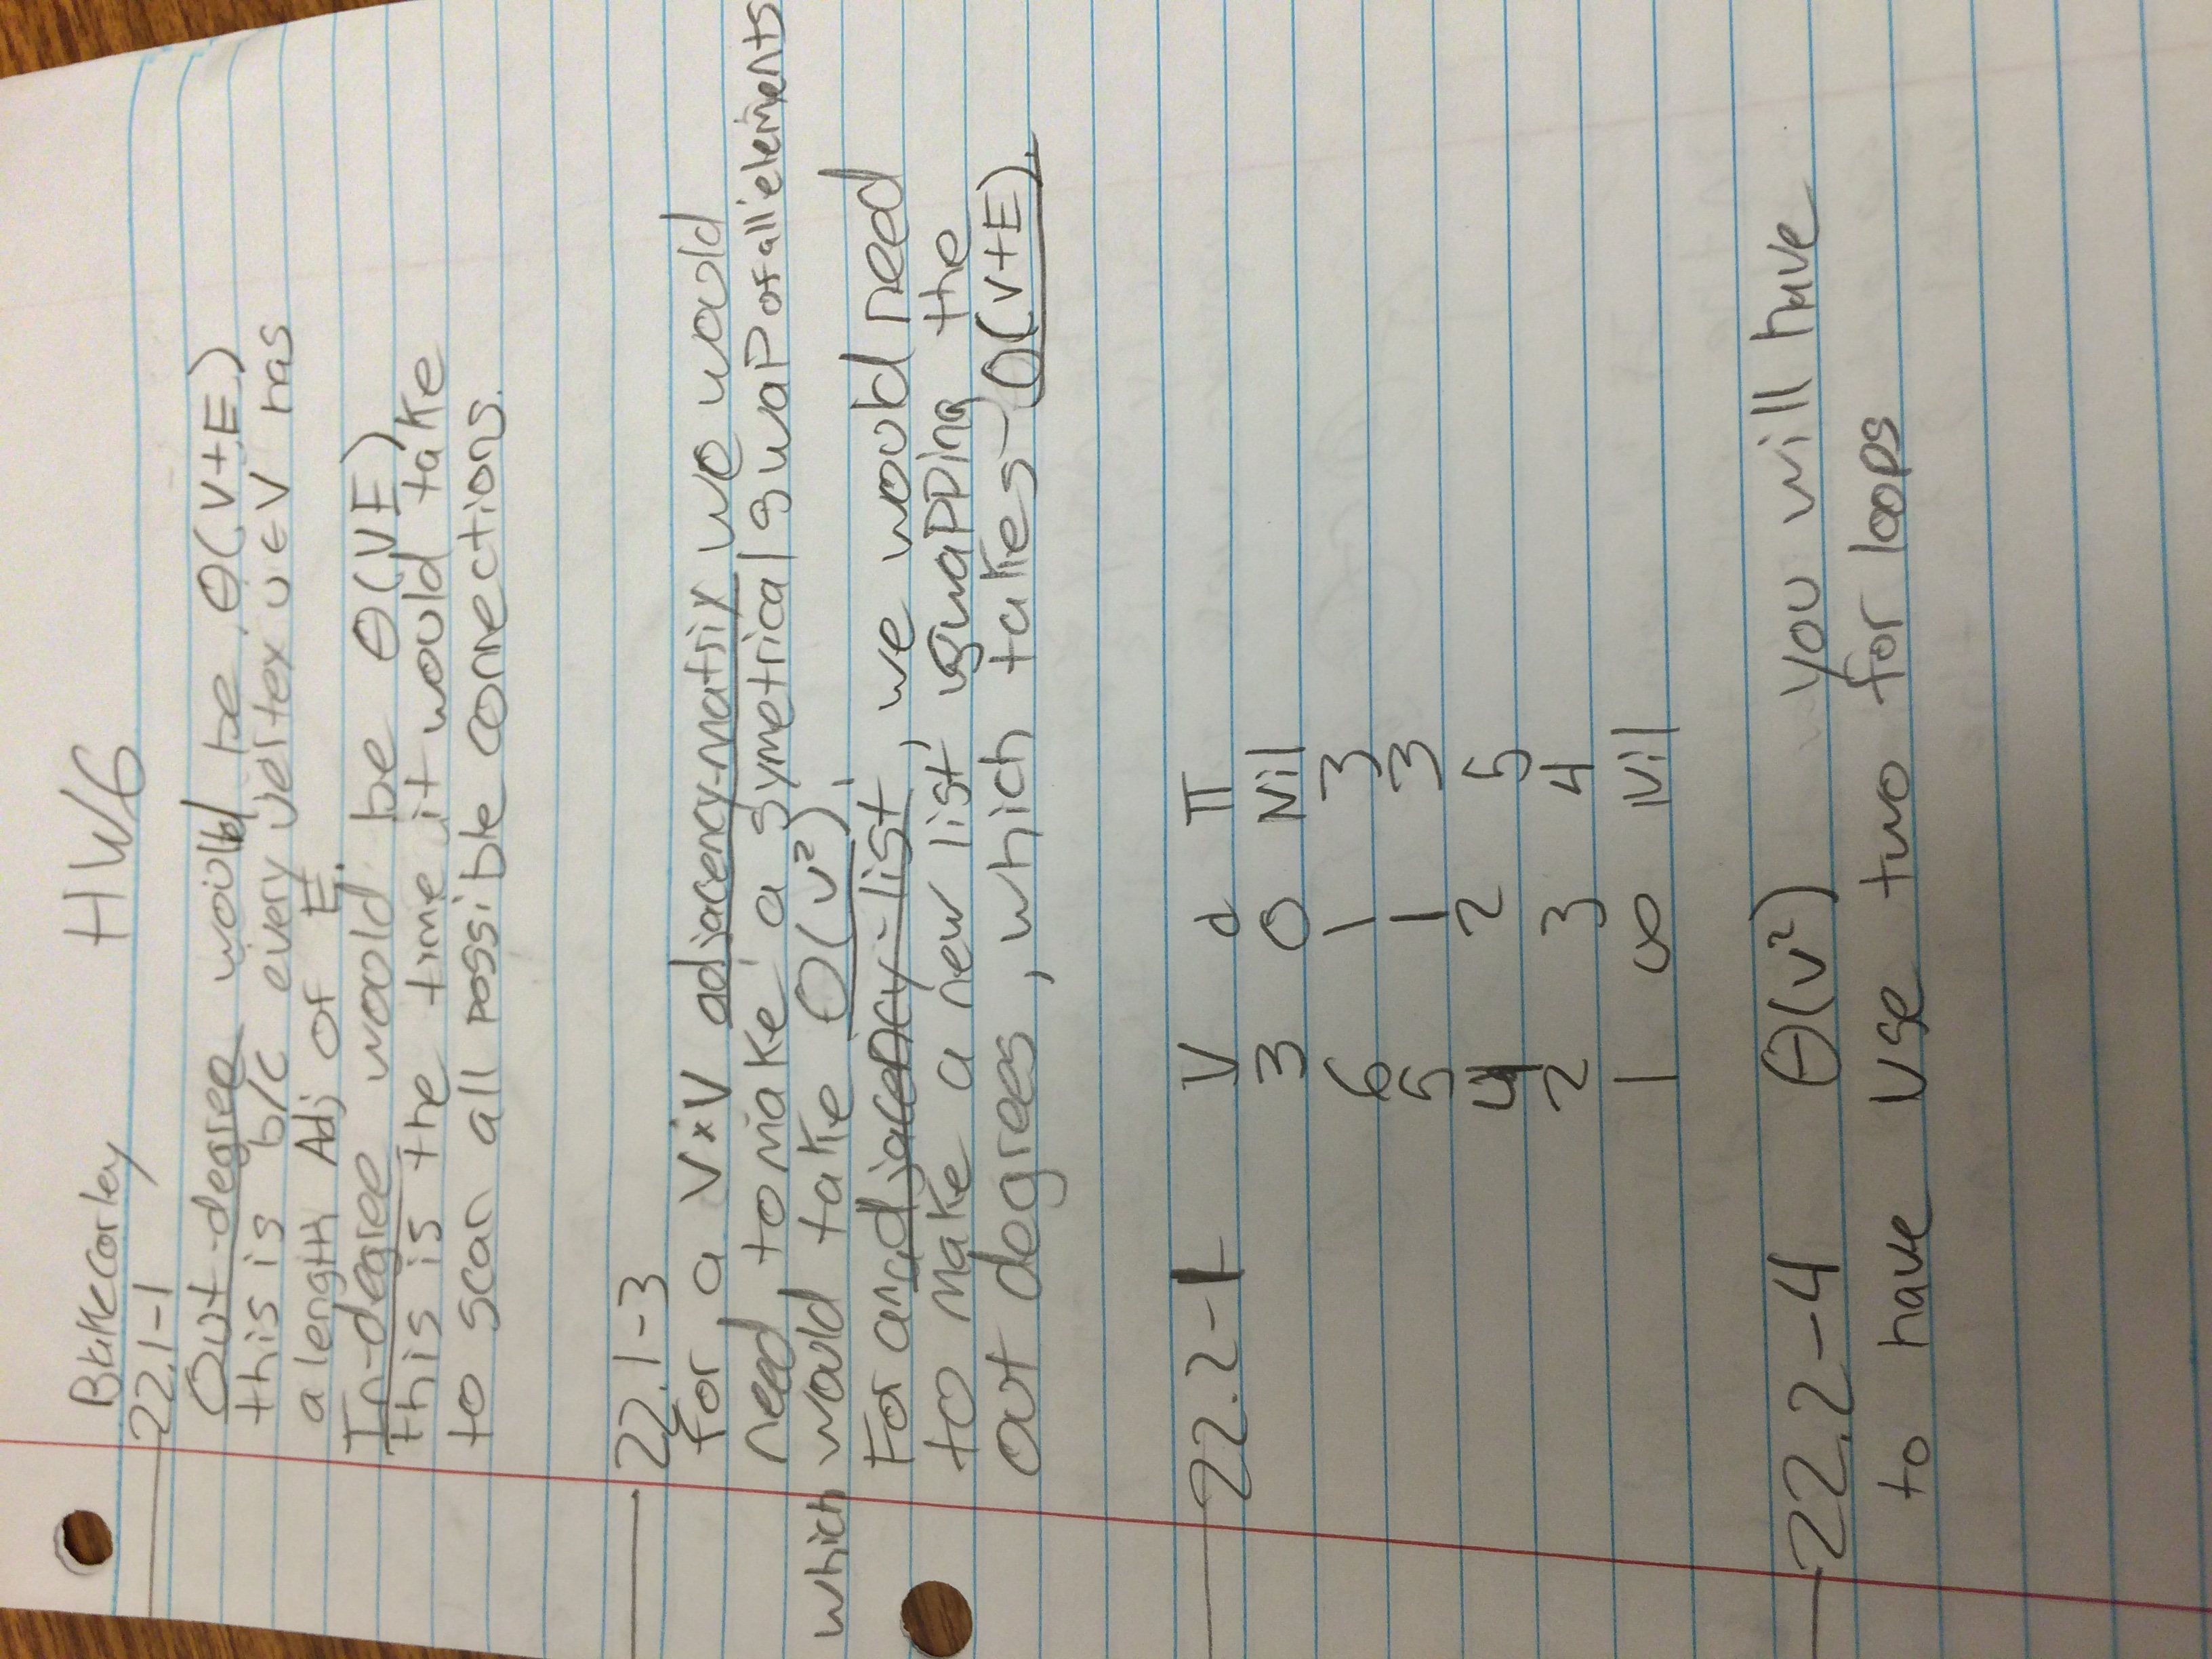 HW6
Blake Corley
22.1-1
Out-degree would be, Θ(V+E)
this is b/c every vertex u ∈ V has
a length Adj of E.
In-degree would be Θ(VE)
this is the time it would take
to scan all possible connections.
22.1-3
for a V×V adjacency-matrix we would
need to make a symetrical swap of all elements
which would take Θ(V²).
For an adjacency-list, we would need
to make a new list swapping the
out degrees, which takes Θ(V+E).
22.2-1 V d π
3 0 Nil
6 1 3
5 1 3
4 2 5
2 3 4
1 ∞ Nil
22.2-4 Θ(V²) you will have
to have use two for loops